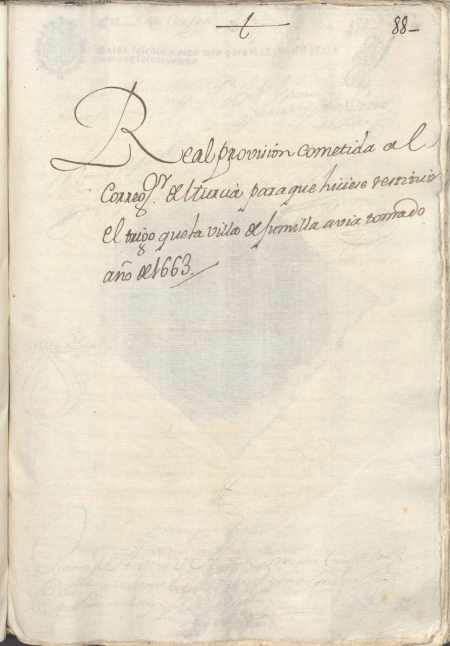 88
Real provision cometida al
Correg.or de Murcia para que hiciese restituir
el trigo que la villa de Jumilla avia tomado
año de 1663